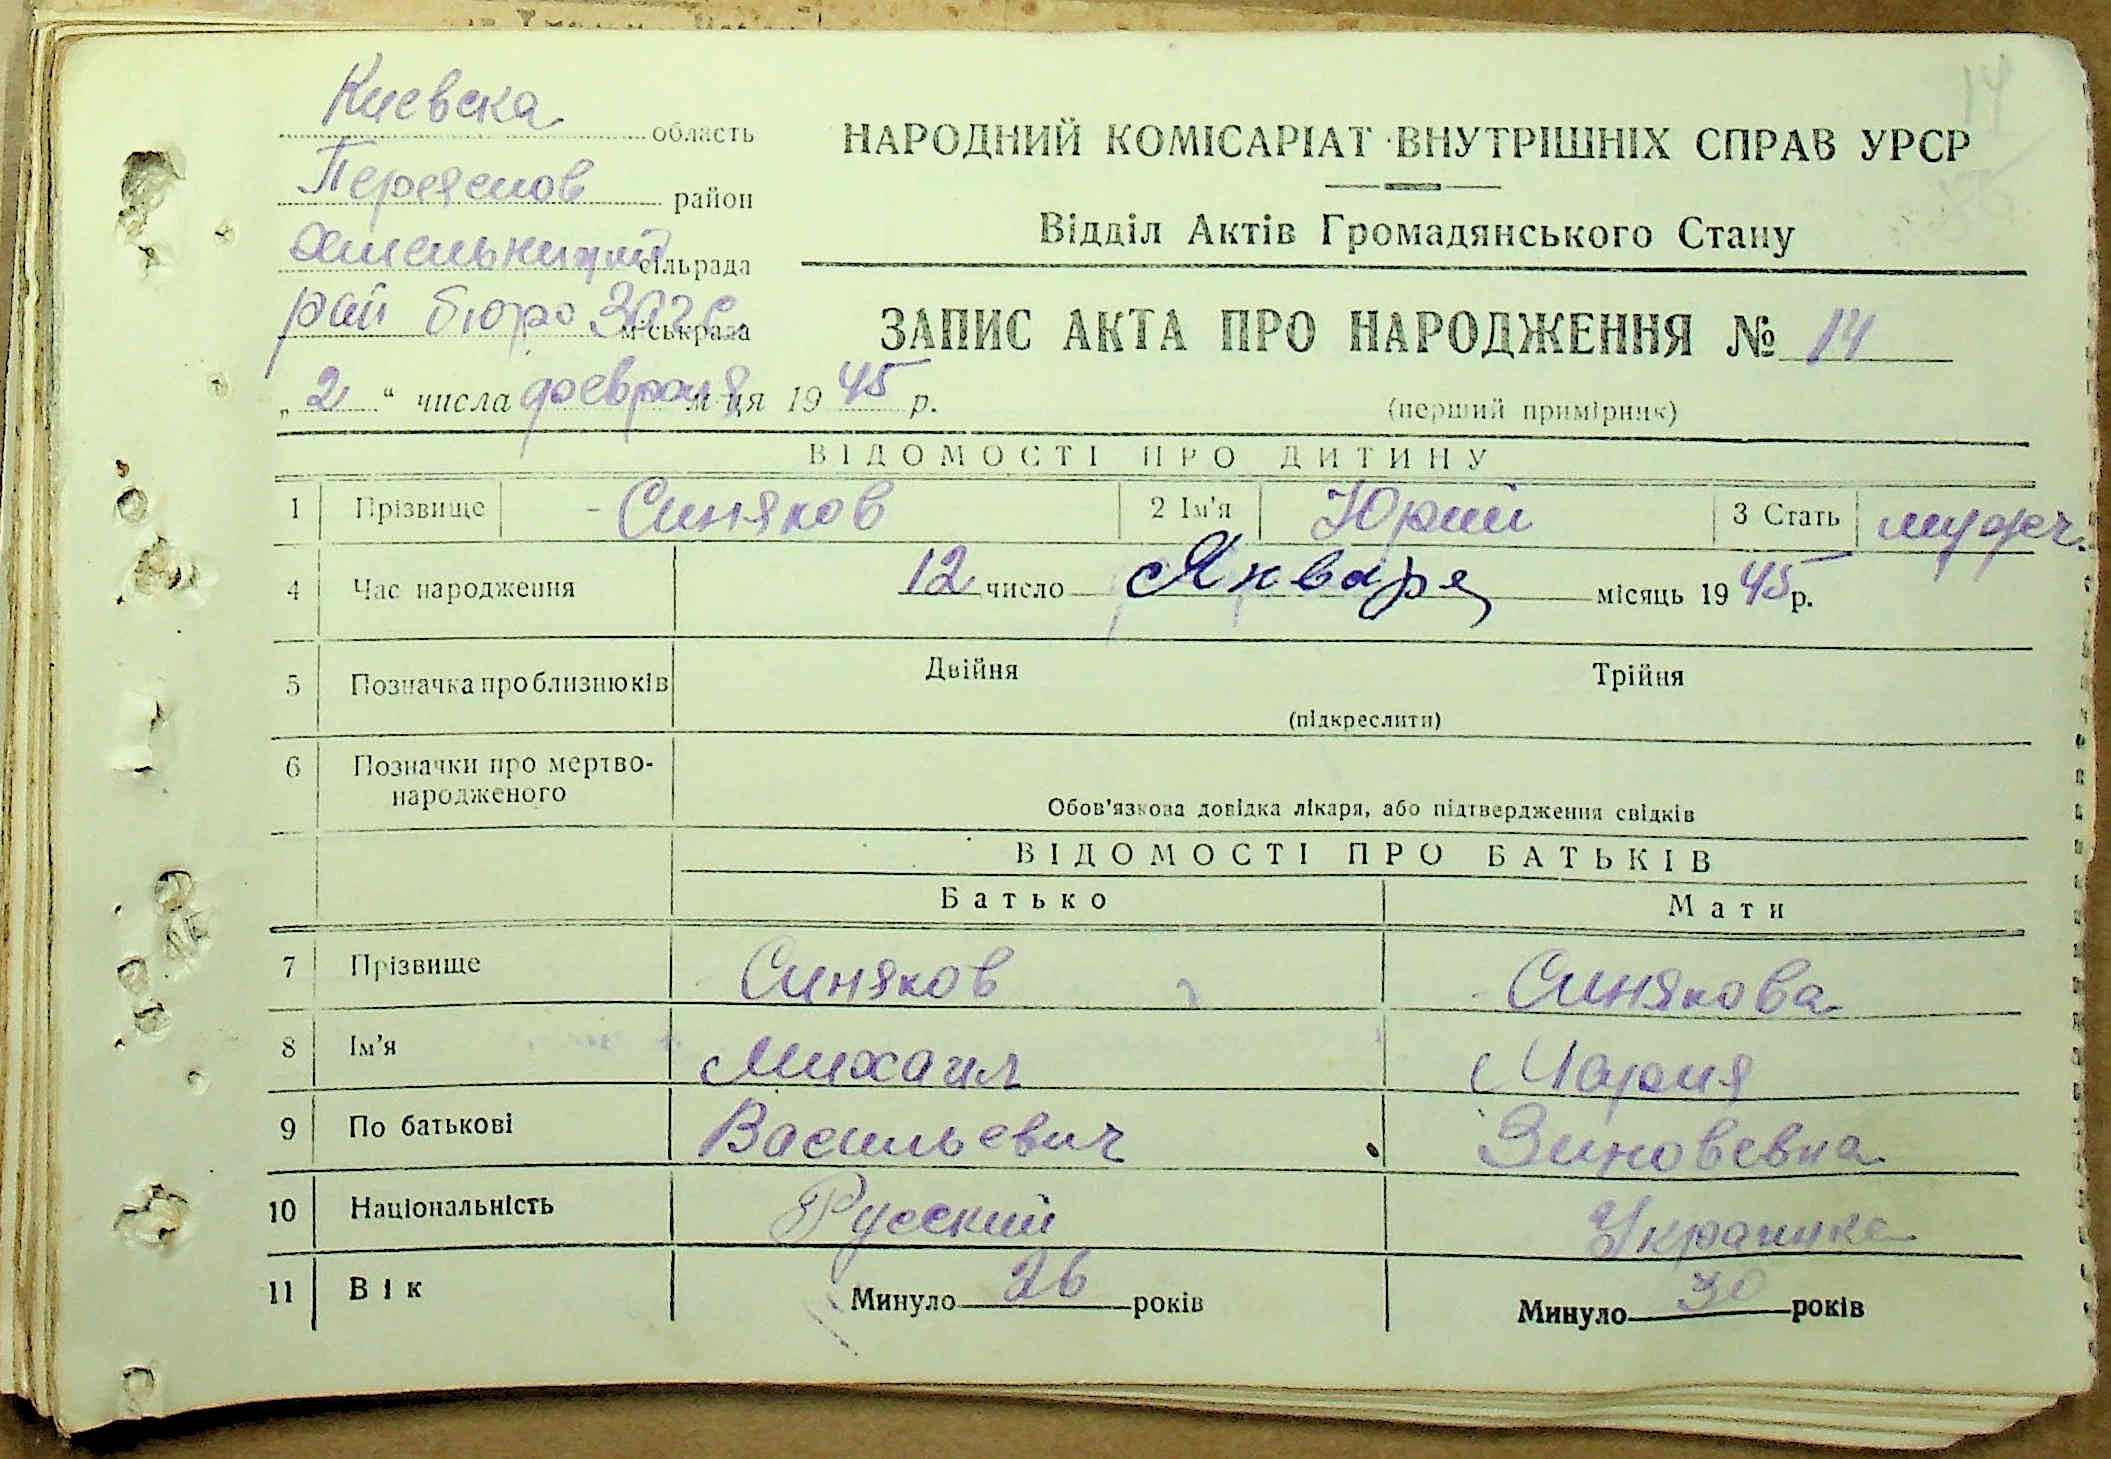 14
Киевска область
Переяслов район
Хмельницкий сільрада
рай бюро Загс міськрада
НАРОДНИЙ КОМІСАРІАТ ВНУТРІШНІХ СПРАВ УРСР
Відділ Актів Громадянського Стану
ЗАПИС АКТА ПРО НАРОДЖЕННЯ № 14
„2“ числа февраля м-ця 1945 р.
(перший примірник)
ВІДОМОСТІ ПРО ДИТИНУ
1 Прізвище Синяков 2 Ім'я Юрий 3 Стать мужч.
4 Час народження 12 число Января місяць 1945 р.
5 Позначка про близнюків Двійня Трійня
(підкреслити)
6 Позначки про мертво-
народженого
Обов'язкова довідка лікаря, або підтвердження свідків
ВІДОМОСТІ ПРО БАТЬКІВ
Батько Мати
7 Прізвище Синяков Синякова
8 Ім'я Михаил Мария
9 По батькові Васильевич Зиновевна
10 Національність Русский Украинка
11 Вік Минуло 26 років Минуло 30 років